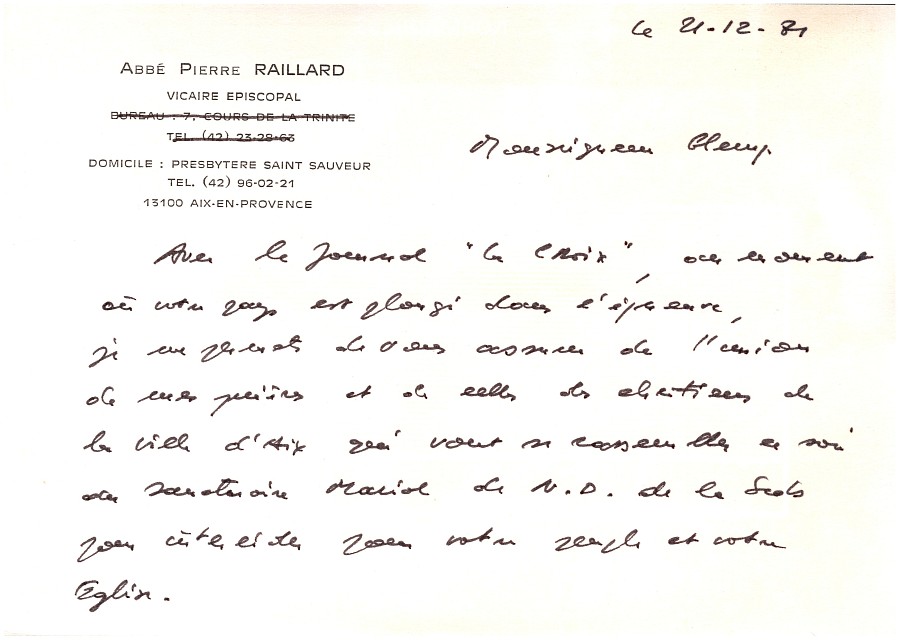 le 21-12-81
ABBÉ PIERRE RAILLARD
VICAIRE EPISCOPAL
BUREAU : 7, COURS DE LA TRINITE
TEL. (42) 23-28-63
DOMICILE : PRESBYTERE SAINT SAUVEUR
TEL. (42) 96-02-21
13100 AIX-EN-PROVENCE
Monseigneur Glemp.
Avec le Journal "la Croix", au moment
où votre pays est plongé dans l'épreuve,
je me permets de vous assurer de l'union
de mes prières et de celles des chrétiens de
la ville d'Aix qui vont se rassembler ce soir
au Sanctuaire Marial de N.D. de la Seds
pour intercéder pour votre peuple et votre
Eglise.